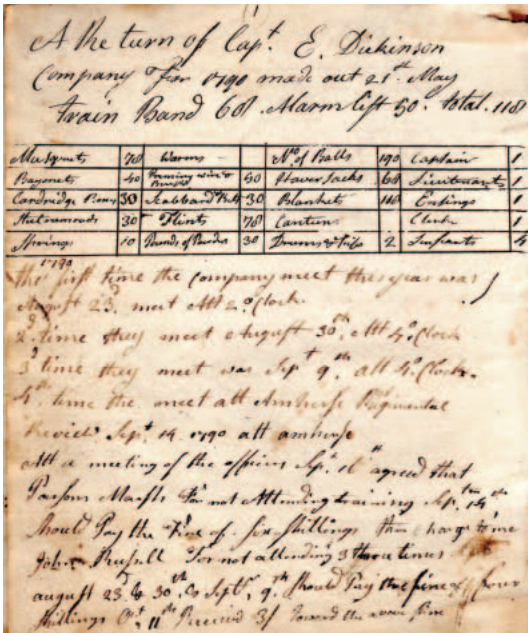 A Return of Capt. E. Dickinson
Company For 1790 made out 21st May
Train Band 68 Alarm list 50. total. 118
Musquets 78 Worms No of Balls 190 Captain 1
Bayonets 40 Preming wire & Brushes 50 Haversacks 68 Lieutenants 1
Cardridge Boxes 30 Scabbard Belts 30 Blankets 118 Ensings 1
30 Flints 78 Canteens Clerke 1
10 Pounds of Powder 30 Drums & Fifes 2 Serjeants 4
1790
the first time the Company meet this year was
August 23d. meet Att 2 o Clock
2d. time they meet August 30th. Att 4 o Clock
3d time they meet was Sept 9th. att 4 o Clock.
4th time the meet att Amherst Regimental
Review Sept. 14. 1790 att amherst
Att a meeting of the officers Sept. 16th agreed that
Parsons Marsh For not Attending training Sept. 14th
Should Pay the Fine of six shillings this Charge to me
John Russell For not attending 3 times
august 23 & 30th & Septr. 9th. Should Pay the fine of four
shillings Oct. 11th Received 3/ Toward the above fine